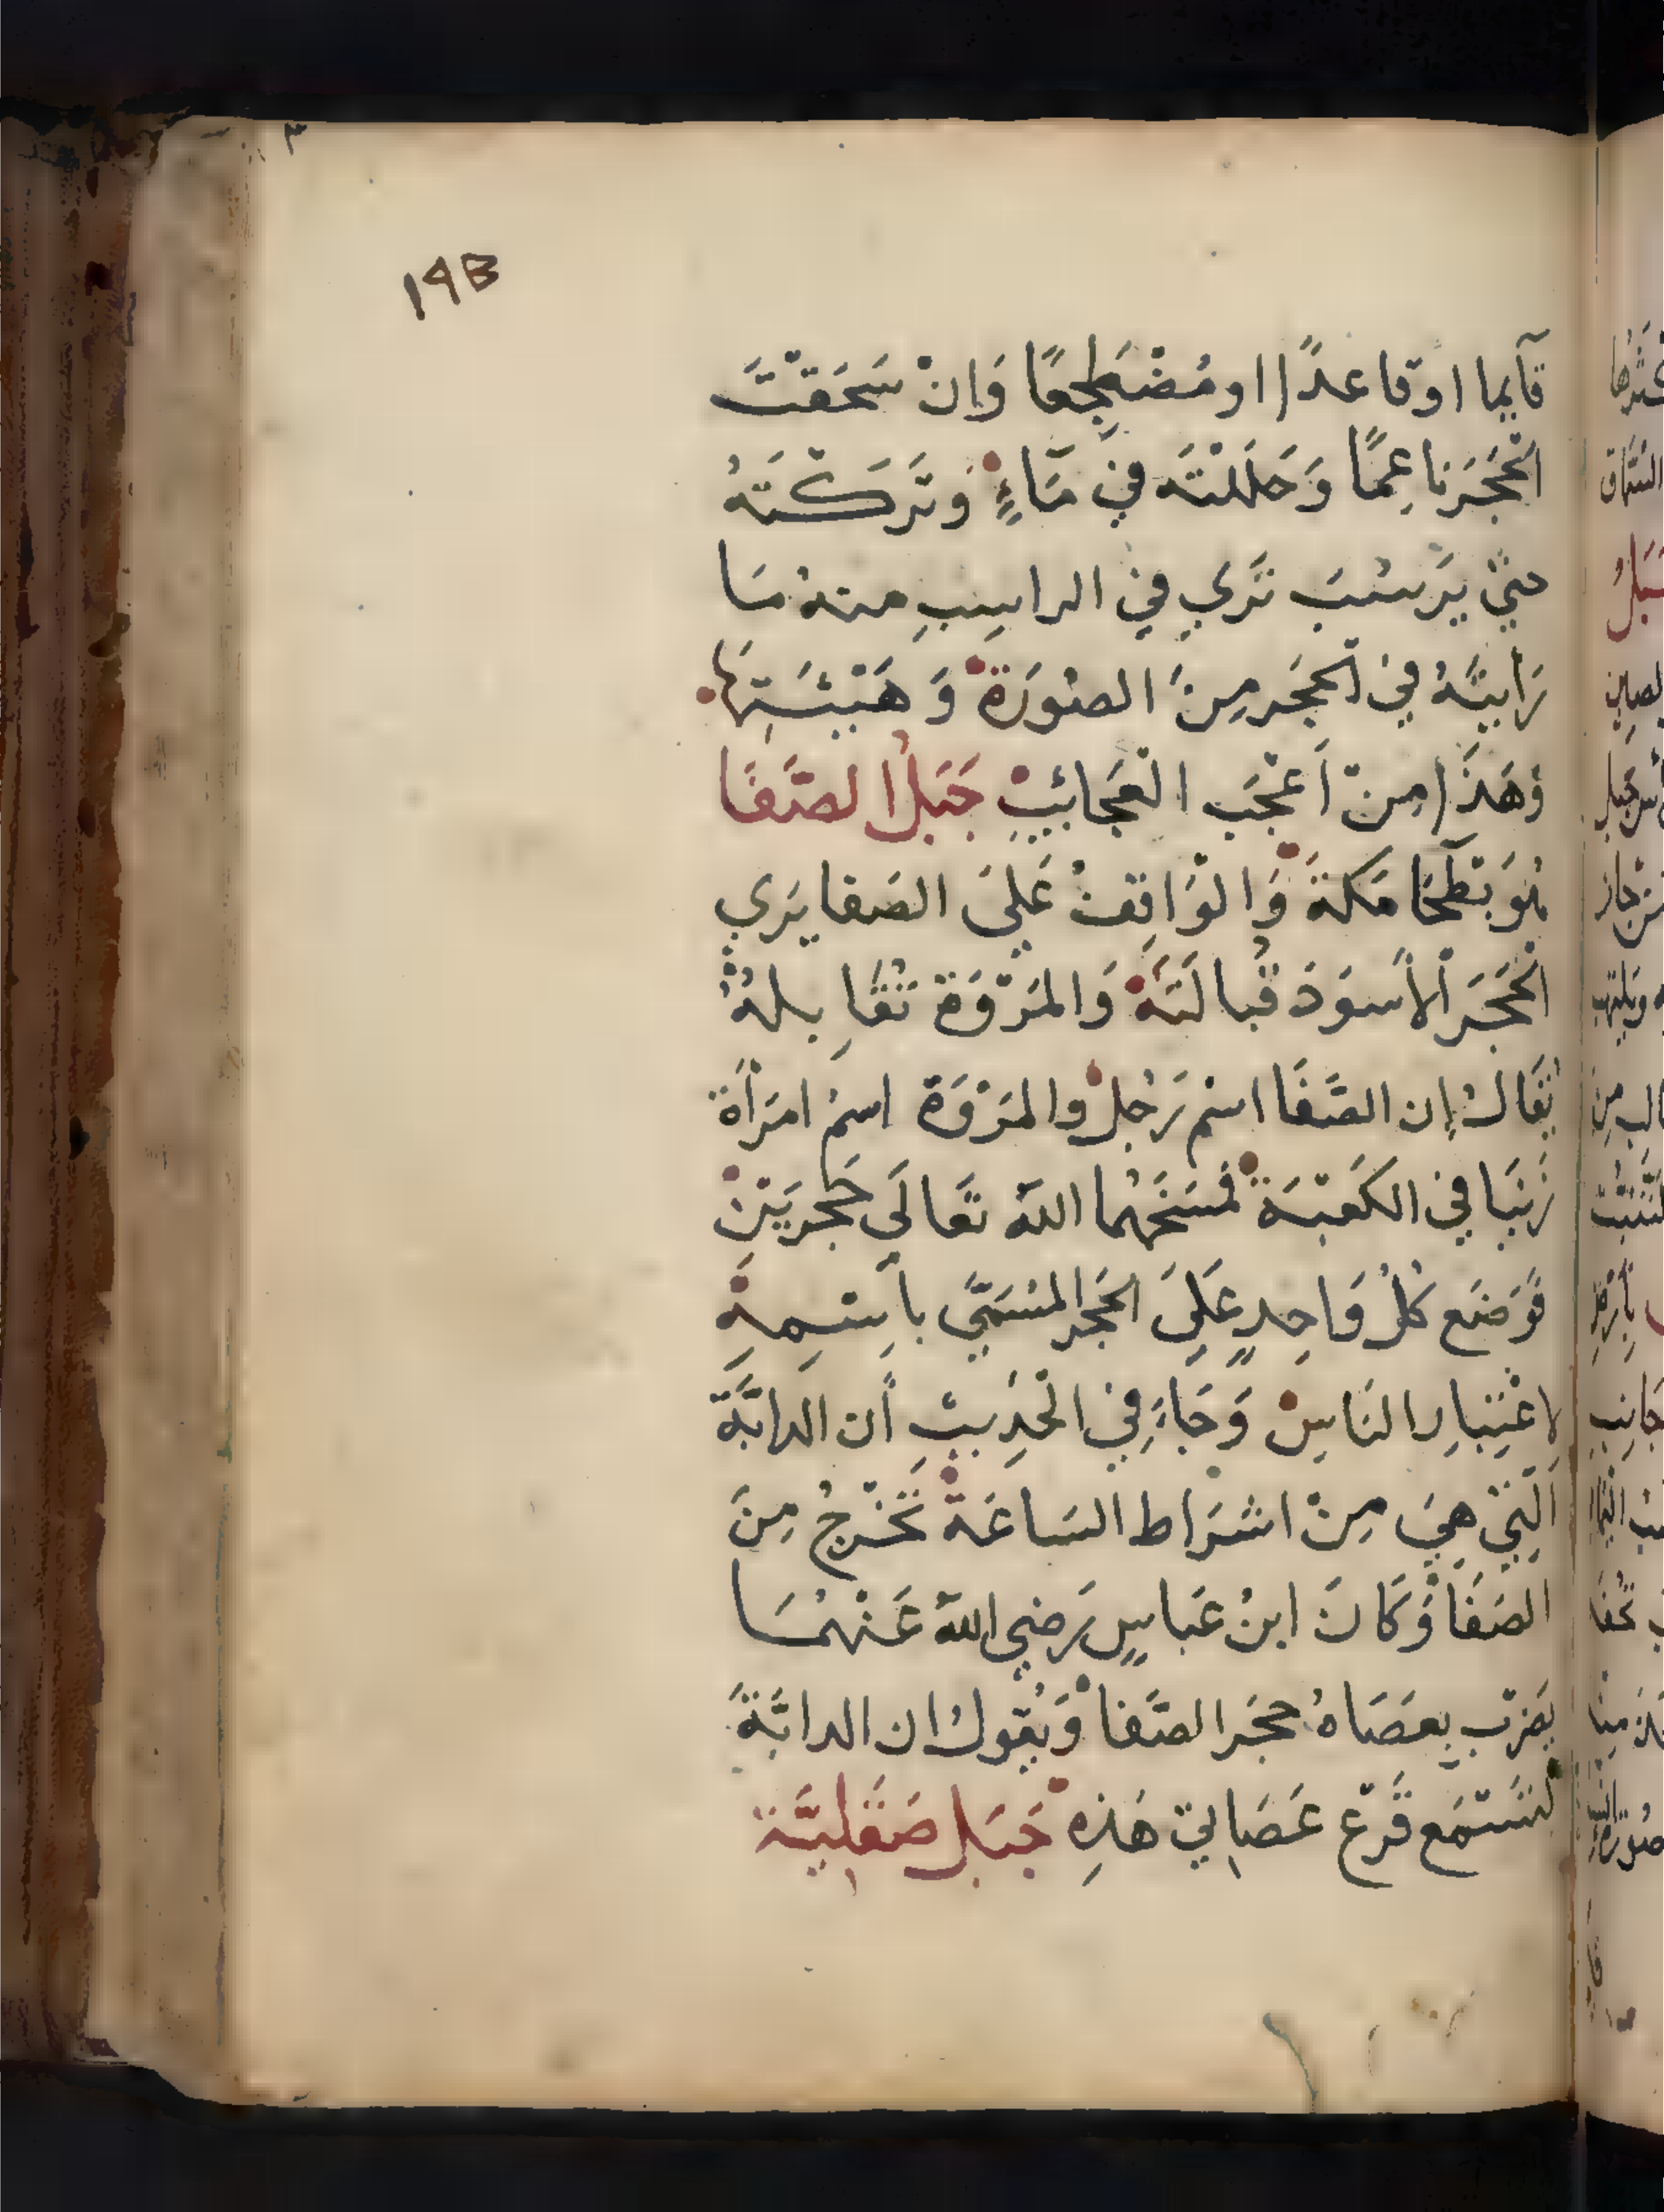 ١٩٣
قآيما اوقاعدًا اومُضْطَجِعًا وَانْ سَحَقْتَ
الْحَجَرَناعِمًا وَحَلَلْتَه في مَآءٍ وَتَرَكْتَهُ
حتي يَرسُبَ تَري في الراسِبِ منه مَا
رَايتَهُ في الْحَجَرِمِنَ الصُورَةْ وَ هَيْئَتِهَا
وَهَذَا مِنْ أَعْجَب الْعَجَائبِ جَبَلُ الصَّفَا
هُوَ بَطْحَا مَكة وَالْوَاقِفُ عَليَ الصَفا يَري
الْحَجَرَ الأَسوَدَ قُبالَتَهْ وَالمَرْوَة تُقَابلهُ
يُقَالُ إن الصَّفَا اسْم رَجُلْ والمَرْوَة اسمُ امرَأَة
زَنَيَا في الكَعْبَة فَمسَخَهُما الله تَعالَي حَجَرَيْنْ
فَوَضَع كُلُ وَاحِدٍ عَلَيَ الحَجَرِالمُسَمَّي باسْمِهِ
لاعْتِبارِالنَاسِ وَجَآءَ فِي الْحَدِيثِ أَن الدابَّةَ
الَّتِيْ هِيَ مِنْ اشرَاط السَاعَة تَخْرجُ مِنَ
الصَفَا وَكَانَ ابنُ عَباسٍ رَضي الله عَنْهُمَا
يَضرب بِعَصَاهُ حجَر الصَّفا وَيُقولُ ان الدابَّةَ
لَتَسْتَمَع قَرْع عَصَايَ هَذِهِ جَبَل صَقَلِيَّة